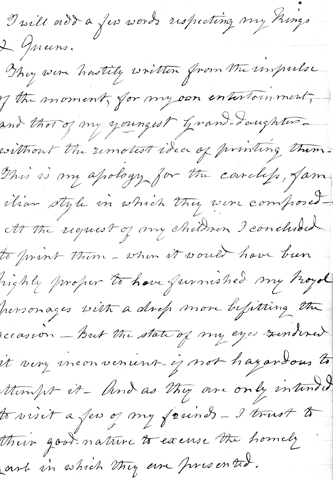 I will add a few words respecting my Kings
& Queens.
They were hastily written from the impulse
of the moment, for my own entertainment,
and that of my youngest Grand-daughters -
without the remotest idea of printing them -
This is my apology for the careless, fam
iliar style in which they were composed -
At the request of my children I concluded
to print them - when it would have been
highly proper to have furnished my Royal
personages with a dress more befitting the
occasion - But the state of my eyes rendered
it very inconvenient - if not hazardous to
attempt it - And as they are only intended
to visit a few of my friends - I trust to
their good nature to excuse the homely
garb in which they are presented.